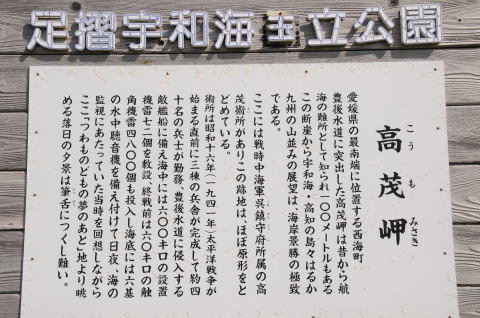 足摺宇和海国立公園
高茂岬
こうもみさき
愛媛県の最南端に位置する西海町
豊後水道に突出した高茂岬は昔から航
海の難所として知られ一〇〇メートルもある
この断崖から宇和海・高知の島々はるか
九州の山並みの展望は、海岸景勝の極致
である。
ここには戦時中海軍呉鎮守府所属の高
茂衛所がありこの跡地は、ほぼ原形をと
どめている。
衛所は昭和十六年(一九四一年)太平洋戦争が
始まる直前に三棟の兵舎が完成して約四
十名の兵士が勤務、豊後水道に侵入する
敵艦船に備え海中には六〇〇キロの設置
機雷七二個を敷設、終戦前は六〇キロの触
角機雷四八〇〇個も投入し海底には六基
の水中聴音機を備え付けて日夜、海の
監視にあたっていた当時を回想しながら
ここ〝つわものどもの夢のあと〟地より眺
める落日の夕景は筆舌につくし難い。